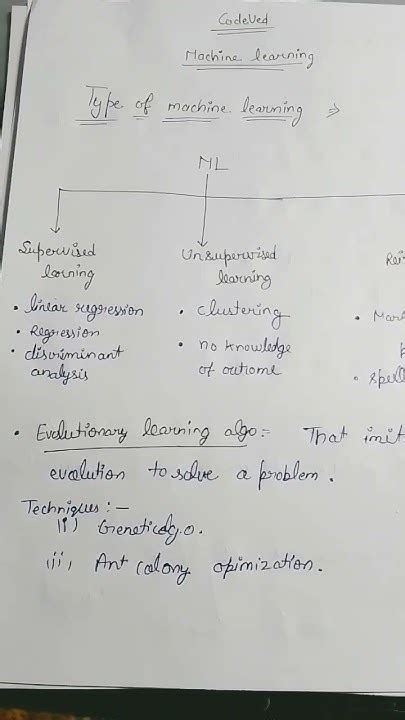 CodeVed
Machine learning
Type of machine learning ⇒
ML
Supervised
learning
• linear regression
• Regression
• discriminant
analysis
Unsupervised
learning
• clustering
• no knowledge
of outcome
Rei
• Mar
• spell
• Evolutionary learning algo:- That imit
evolution to solve a problem.
Techniques :-
(i) Genetic algo.
(ii) Ant colony opimization.